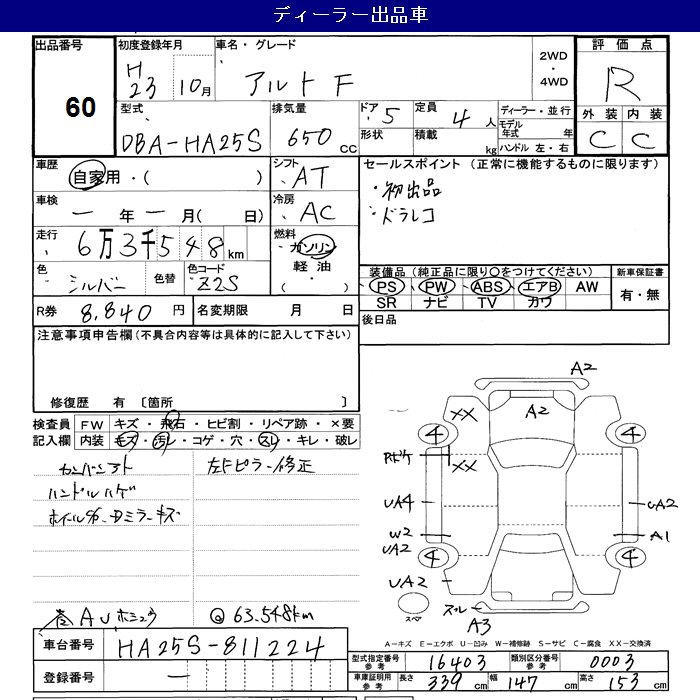 ディーラー出品車
出品番号
60
初度登録年月
H
23 10月
車名・グレード
アルト F
2WD
・
4WD
評価点
R
型式
DBA-HA25S
排気量
650 cc
ドア 5
形状
定員 4 人
積載 kg
ディーラー・並行
モデル
年式 年
ハンドル 左・右
外装 内装
C C
車歴
自家用・( )
シフト
AT
車検
ー 年 ー 月( 日)
冷房
AC
走行
6万3千548km
燃料
ガソリン
軽油
( ・ )
色
シルバー
色替
色コード
Z2S
R券
8,840 円
名変期限 月 日
セールスポイント (正常に機能するものに限ります)
・初出品
・ドラレコ
装備品 (純正品に限り○をつけてください)
PS PW ABS エアB AW
SR ナビ TV カワ
新車保証書
有・無
後日品
注意事項申告欄(不具合内容等は具体的に記入して下さい)
修復歴 有 〔箇所 〕
検査員
記入欄
FW キズ・飛石・ヒビ割・リペア跡・×要
内装 キズ・汚レ・コゲ・穴・スレ・キレ・破レ
ハンドルハゲ
左Fピラー修正
63,548km
車台番号
HA25S-811224
登録番号
ー
A2
A2
XX
XX
4
4
UA4
UA2
W2
UA2
A1
4
4
UA2
スペア
A3
A-キズ E-エクボ U-凹み W-補修跡 S-サビ C-腐食 XX-交換済
型式指定番号
参考
16403
類別区分番号
参考
0003
車庫証明用
参考
長さ 339 cm
幅 147 cm
高さ 153 cm